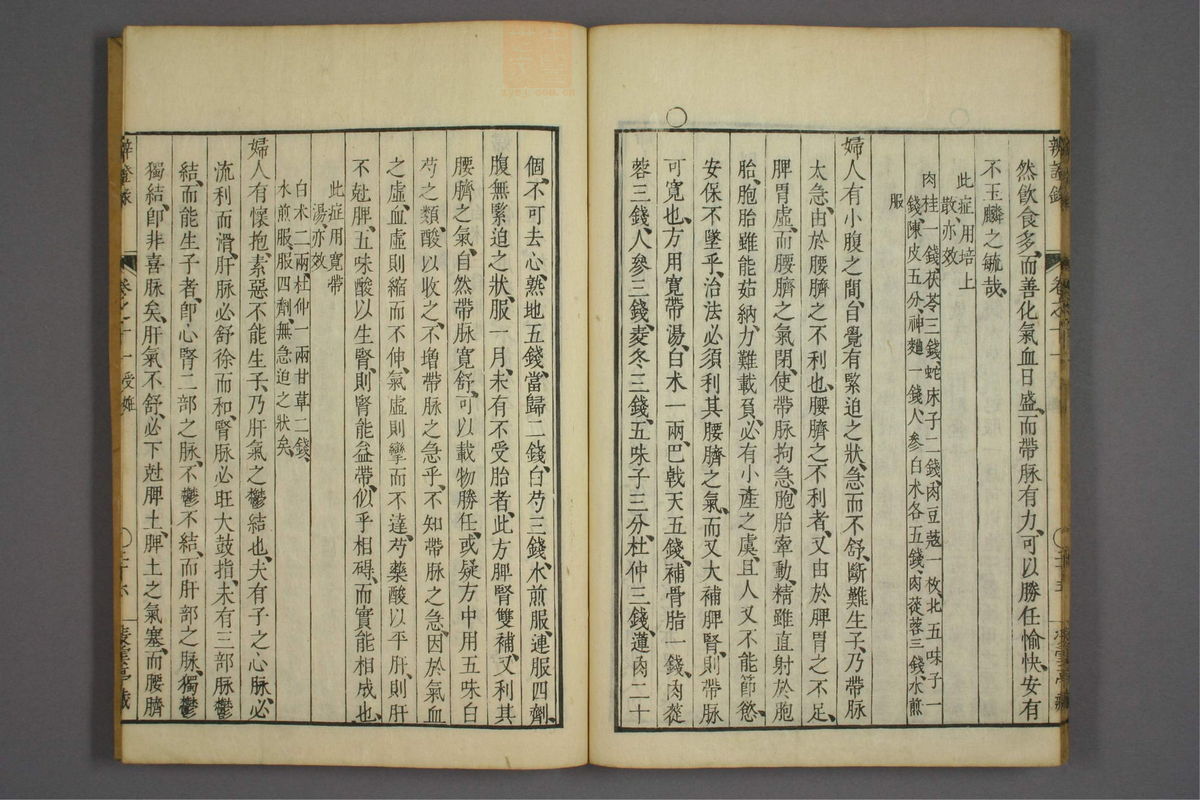 辨證錄 卷之十一 三十五
然飲食多、而善化氣血日盛、而帶脉有力、可以勝任愉快、安有
不玉麟之毓哉、
此症用培上
散亦效
肉桂一錢茯苓三錢蛇床子二錢肉豆蔻一枚北五味子一
錢陳皮五分神麯一錢人參白朮各五錢肉蓯蓉三錢水煎
服
婦人有小腹之間自覺有緊迫之狀、急而不舒、斷難生子、乃帶脉
太急、由於腰臍之不利也、腰臍之不利者、又由於脾胃之不足、
脾胃虛、而腰臍之氣閉、使帶脉拘急、胞胎牽動、精雖直射於胞
胎、胞胎雖能茹納、力難載負、必有小產之虞、且人又不能節慾、
安保不墜乎、治法必須利其腰臍之氣、而又大補脾腎、則帶脉
可寬也、方用寬帶湯、白朮一兩、巴戟天五錢、補骨脂一錢、肉蓯
蓉三錢、人參三錢、麥冬三錢、五味子三分、杜仲三錢、蓮肉二十
個、不可去心、熟地五錢、當歸二錢、白芍三錢、水煎服、連服四劑、
腹無緊迫之狀、服一月、未有不受胎者、此方脾腎雙補、又利其
腰臍之氣、自然帶脉寬舒、可以載物勝任、或疑方中用五味白
芍之類、酸以收之、不增帶脉之急乎、不知帶脉之急、因於氣血
之虛、血虛則縮而不伸、氣虛則攣而不達、芍藥酸以平肝、則肝
不尅脾、五味酸以生腎、則腎能益帶、似乎相碍、而實能相成也、
此症用寬帶
湯亦效
白朮二兩、杜仲一兩甘草二錢、
水煎服、服四劑無急迫之狀矣、
婦人有懷抱、素惡不能生子、乃肝氣之鬱結也、夫有子之心脉、必
流利而滑、肝脉必舒徐而和、腎脉必旺大鼓指、未有三部脉鬱
結、而能生子者、卽心腎二部之脉、不鬱不結、而肝部之脉、獨鬱
獨結、卽非喜脉矣、肝氣不舒、必下尅脾土、脾土之氣塞、而腰臍
辨證錄 卷之十一 受姙 三十六